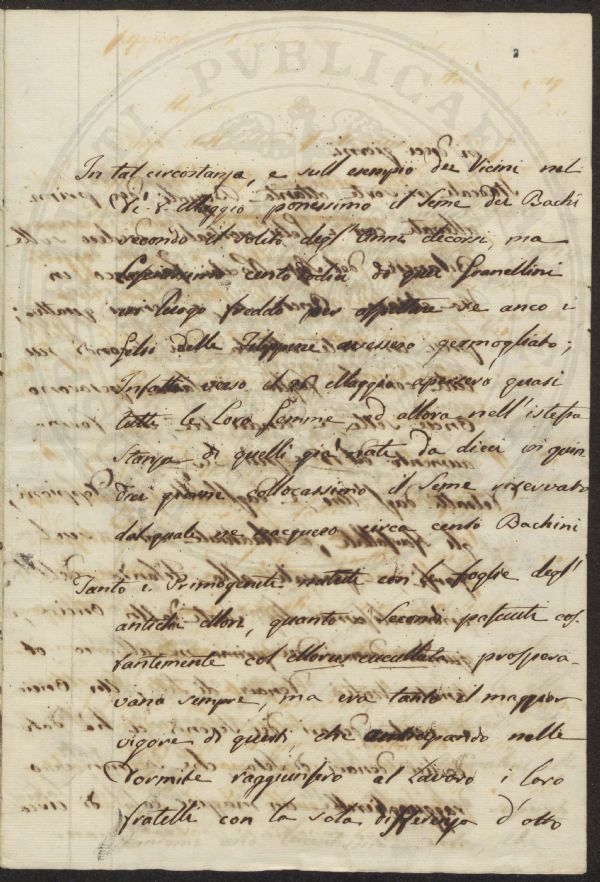 2
In tal circostanza, e sull'esempio dei Vicini nel
di Maggio ponessimo il Seme dei Bachi
secondo il solito degl' Anni decorsi, ma
cento di quei Granellini
in luogo freddo per aspettare se anco i
Gelsi delle Filippine avessero germogliato;
Infatti verso il Maggio apersero quasi
tutte le Loro Gemme, ed allora nell'istessa
Stanza di quelli già nati da dieci in quin
dici giorni collocassimo il Seme riservato
dal quale ne nacquero circa cento Bachini
Tanto i Primogeniti nutriti con le foglie degl'
antichi Mori, quanto i Secondi pasciuti cos-
tantemente col Morus cucullata prospera-
vano sempre, ma era tanto il maggior
vigore di questi, che anticipando nelle
Dormite raggiunsero al Lavoro i loro
fratelli con la sola differenza d'otto